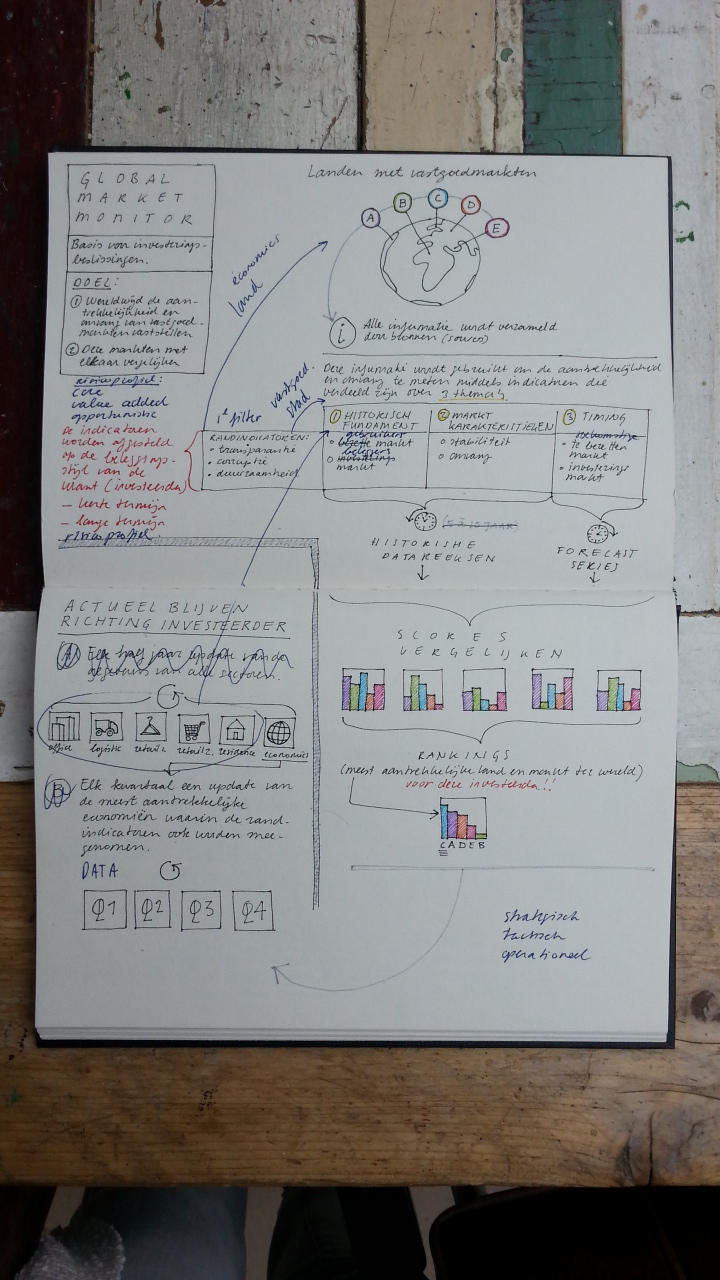 GLOBAL
MARKET
MONITOR
Basis voor investerings-
beslissingen.
DOEL:
① Wereldwijd de aan-
trekkelijkheid en
omvang van vastgoed-
markten vaststellen
② Deze markten met
elkaar vergelijken
risicoprofiel:
core
value added
opportunistic
De indicatoren
worden afgesteld
op de beleggings-
stijl van de
klant (investeerder)
– korte termijn
– lange termijn
risicoprofiel.
economics
land
vastgoed.
stad
1e filter
RANDINDICATOREN:
• transparantie
• corruptie
• duurzaamheid
Landen met vastgoedmarkten
A B C D E
i
Alle informatie wordt verzameld
door bronnen (sources)
Deze informatie wordt gebruikt om de aantrekkelijkheid
en omvang te meten middels indicatoren die
verdeeld zijn over 3 thema's
① HISTORISCH
FUNDAMENT
gebruikers
bezette markt
beleggers
investerings
markt
② MARKT
KARAKTERISTIEKEN
o stabiliteit
o omvang
③ TIMING
toekomstige
o te bezetten
markt
o investerings
markt
(5 à 10 JAAR)
HISTORISHE
DATAREEKSEN
FORECAST
SERIES
SCORES
VERGELIJKEN
RANKINGS
(meest aantrekkelijke land en markt ter wereld)
voor deze investeerder!!
C A D E B
strategisch
tactisch
operationeel
ACTUEEL BLIJVEN
RICHTING INVESTEERDER
A Elk half jaar update van de
gegevens van alle sectoren.
office logistic retail 1. retail 2. residence economics
B Elk kwartaal een update van
de meest aantrekkelijke
economiën waarin de rand-
indicatoren ook worden mee-
genomen.
DATA
Q1 Q2 Q3 Q4